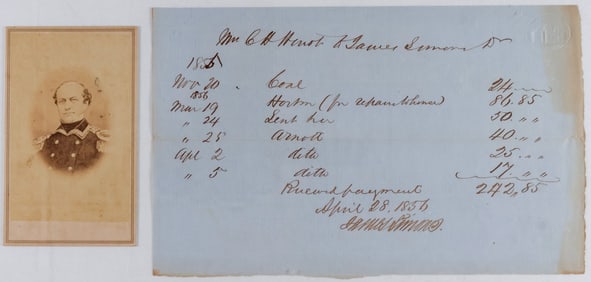 Mrs C H Hunt to James Simons Dr
1855
Nov 20 Coal 24 "
1856
Mar 19 Horton (for repairs to house) 86.85
" 24 Lent her 50 " "
" 25 Arnott 40 " "
Apl 2 ditto 25 " "
" 5 ditto 17 " "
242,85
Received payment
April 28, 1856
James Simons.